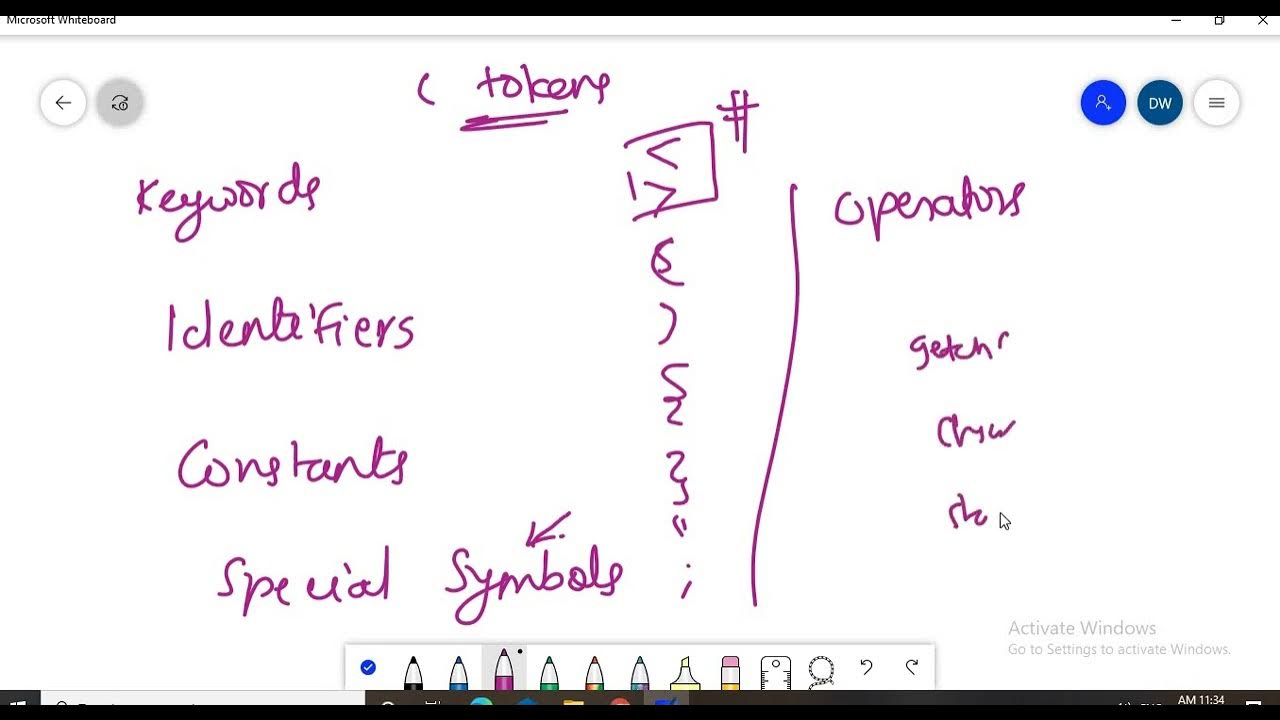 Microsoft Whiteboard
C tokens
#
<
>
Keywords
Operators
(
)
Identifiers
{
getchr
}
Constants
"
Special Symbols ;
DW
Activate Windows
Go to Settings to activate Windows.
AM 11:34